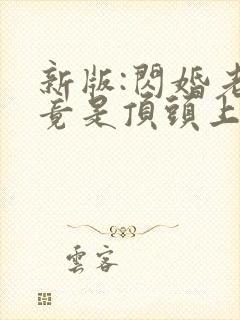 新版:閃婚老
竟是頂頭上
雲客